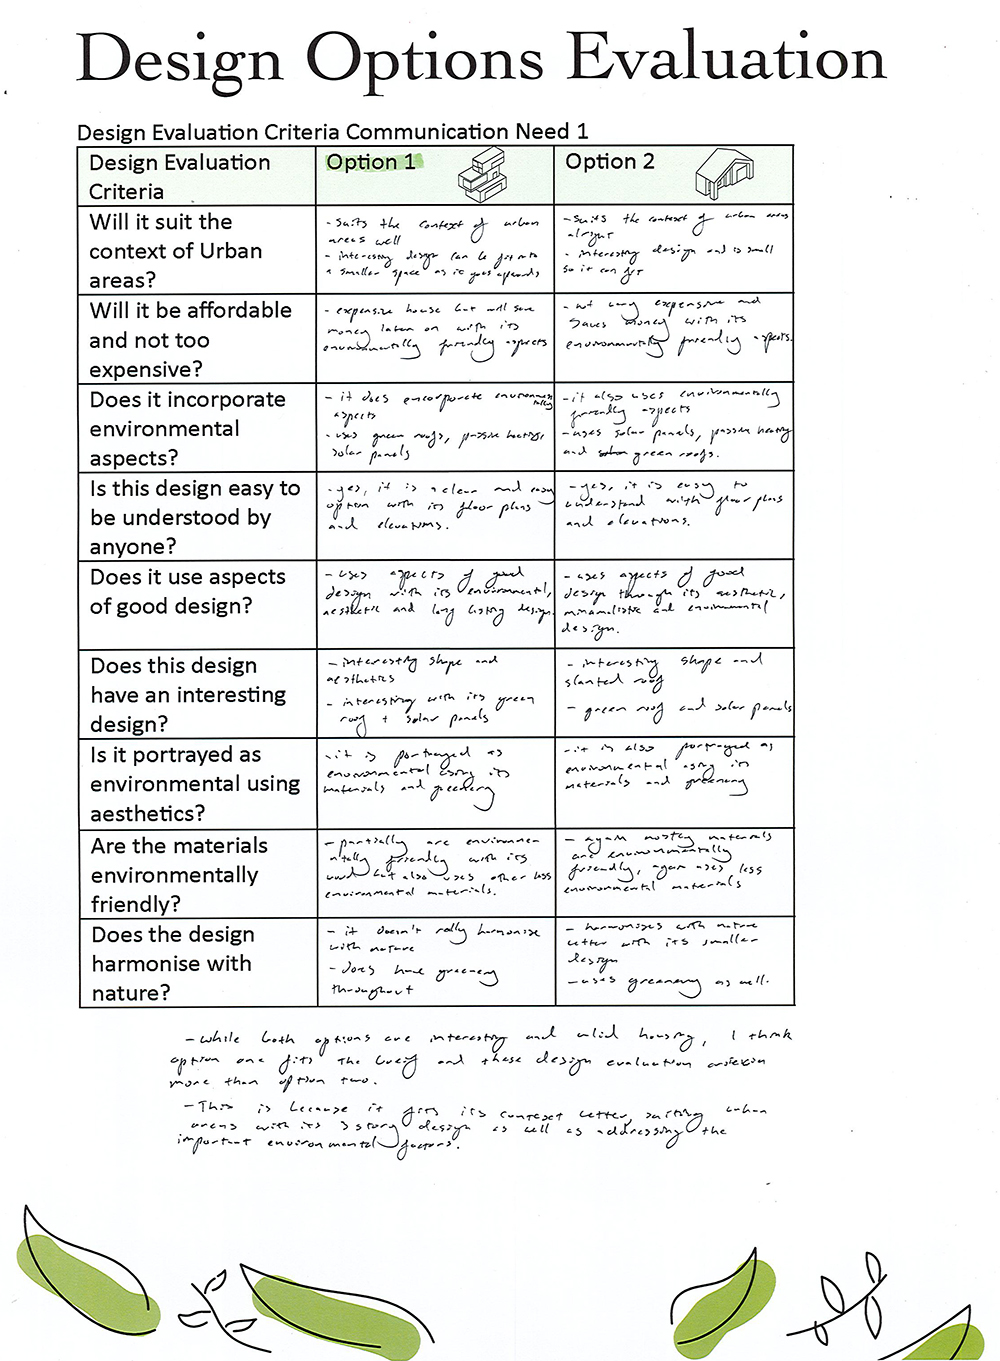 Design Options Evaluation
Design Evaluation Criteria Communication Need 1
Design Evaluation
Criteria
Option 1
Option 2
Will it suit the
context of Urban
areas?
- suits the context of urban
areas well
- interesting design can be fit into
a smaller space as it goes upwards
- suits the context of urban areas
alright
- interesting design and is small
so it can fit
Will it be affordable
and not too
expensive?
- expensive house but will save
money later on with its
environmentally friendly aspects
- not very expensive and
saves money with its
environmentally friendly aspects.
Does it incorporate
environmental
aspects?
- it does encorporate environmentally
aspects
- uses green roofs, passive heating,
solar panels
- it also uses environmentally
friendly aspects
- uses solar panels, passive heating
and green roofs.
Is this design easy to
be understood by
anyone?
- yes, it is a clear and easy
option with its floor plans
and elevations.
- yes, it is easy to
understand with floor plans
and elevations.
Does it use aspects
of good design?
- uses aspects of good
design with its environmental,
aesthetic and long lasting design.
- uses aspects of good
design through its aesthetic,
minimalistic and environmental
design.
Does this design
have an interesting
design?
- interesting shape and
aesthetics
- interesting with its green
roof + solar panels
- interesting shape and
slanted roof
- green roof and solar panels
Is it portrayed as
environmental using
aesthetics?
- it is portrayed as
environmental using its
materials and greenery
- it is also portrayed as
environmental using its
materials and greenery
Are the materials
environmentally
friendly?
- partially are environme-
ntally friendly with its
wood but also uses other less
environmental materials.
- again mostly materials
are environmentally
friendly, again uses less
environmental materials
Does the design
harmonise with
nature?
- it doesn't really harmonise
with nature
- does have greenery
throughout
- harmonises with nature
better with its smaller
design
- uses greenery as well.
- While both options are interesting and valid housing, I think
option one fits the breif and these design evaluation criteria
more than option two.
- This is because it fits its context better, suiting urban
areas with its 3 story design as well as addressing the
important environmental factors.